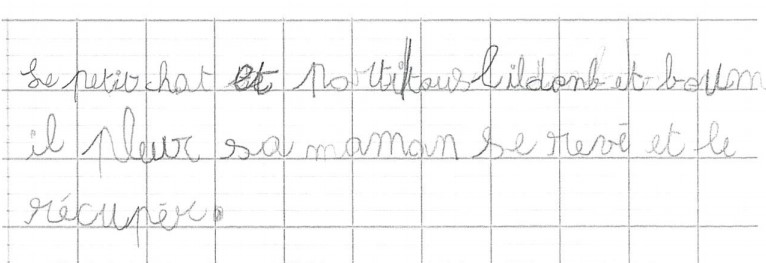 Le petit chat et partitous lildont et boum
il pleur sa maman se revé et le
récupér.